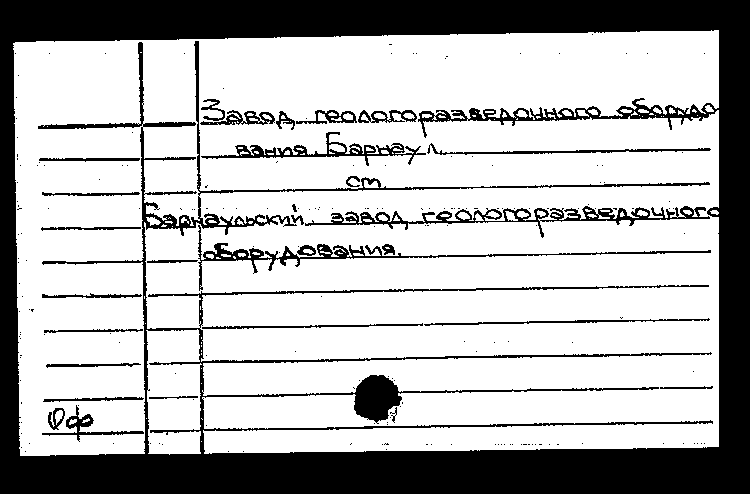 Завод геологоразведочного оборудо
вания. Барнаул.
см.
Барнаульский завод геологоразведочного
оборудования.
Офф